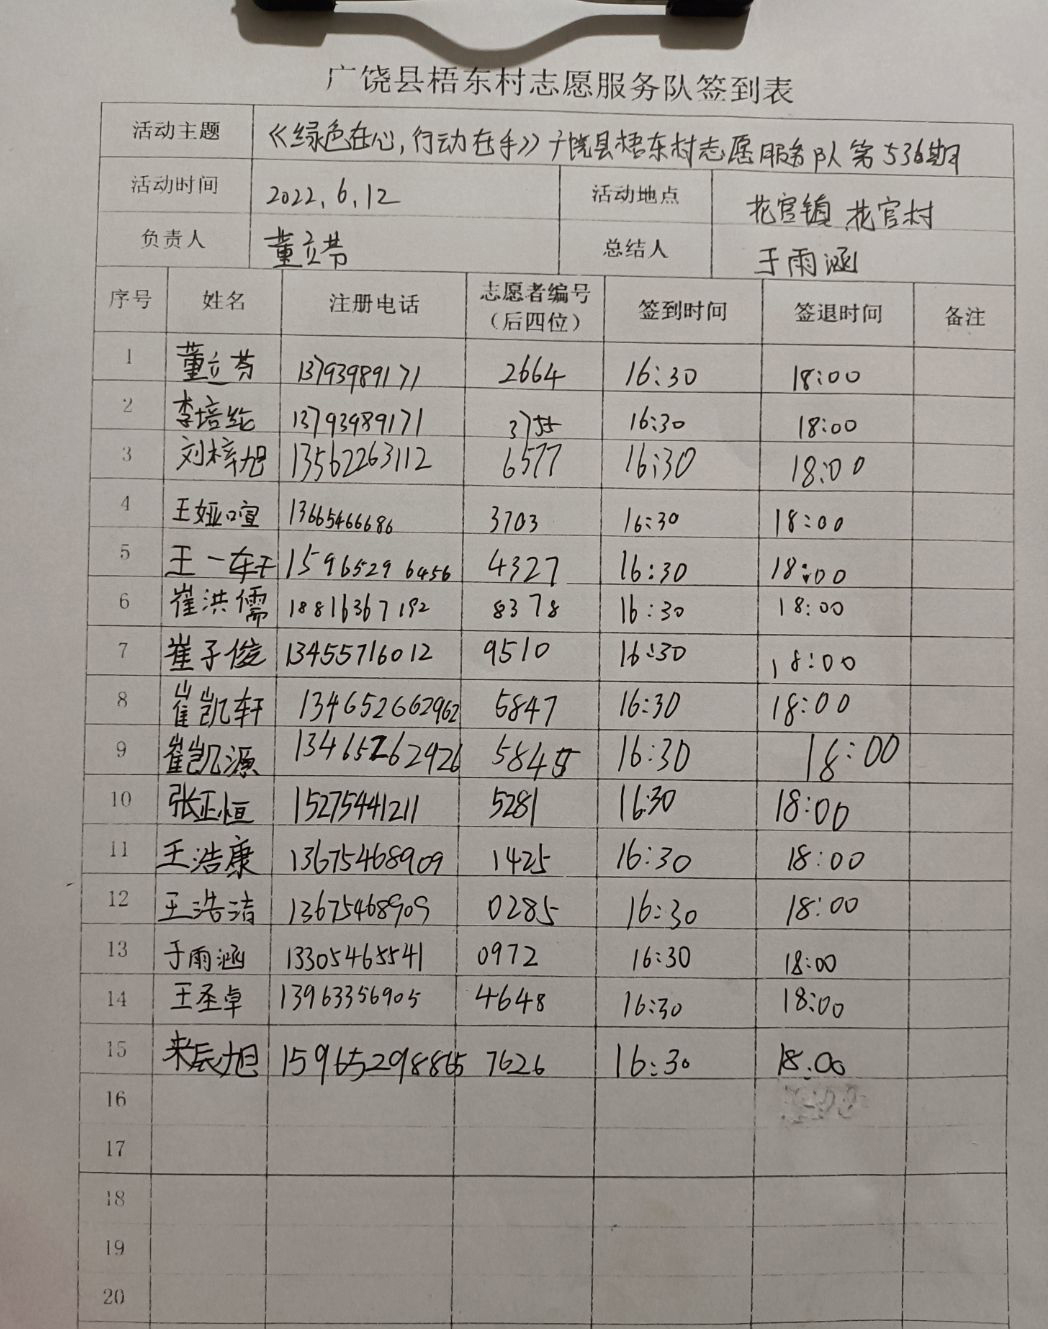 广饶县梧东村志愿服务队签到表
活动主题 《绿色在心,行动在手》广饶县梧东村志愿服务队第536期
活动时间 2022.6.12 活动地点 花官镇 花官村
负责人 董立芬 总结人 于雨涵
序号 姓名 注册电话 志愿者编号(后四位) 签到时间 签退时间 备注
1 董立芬 13793989171 2664 16:30 18:00
2 李培纶 13793989171 3755 16:30 18:00
3 刘梓旭 13562263112 6577 16:30 18:00
4 王娅喧 13665466686 3703 16:30 18:00
5 王一 15965296456 4327 16:30 18:00
6 崔洪儒 18816367192 8378 16:30 18:00
7 崔子俊 13455716012 9510 16:30 18:00
8 崔凯轩 134652662962 5847 16:30 18:00
9 崔凯源 13465262926 5845 16:30 18:00
10 张正恒 15275441211 5281 16:30 18:00
11 王浩康 13675468909 1425 16:30 18:00
12 王浩洁 13675468909 0285 16:30 18:00
13 于雨涵 13305465541 0972 16:30 18:00
14 王圣卓 13963356905 4648 16:30 18:00
15 来辰旭 159652988665 7626 16:30 18.00
16
17
18
19
20